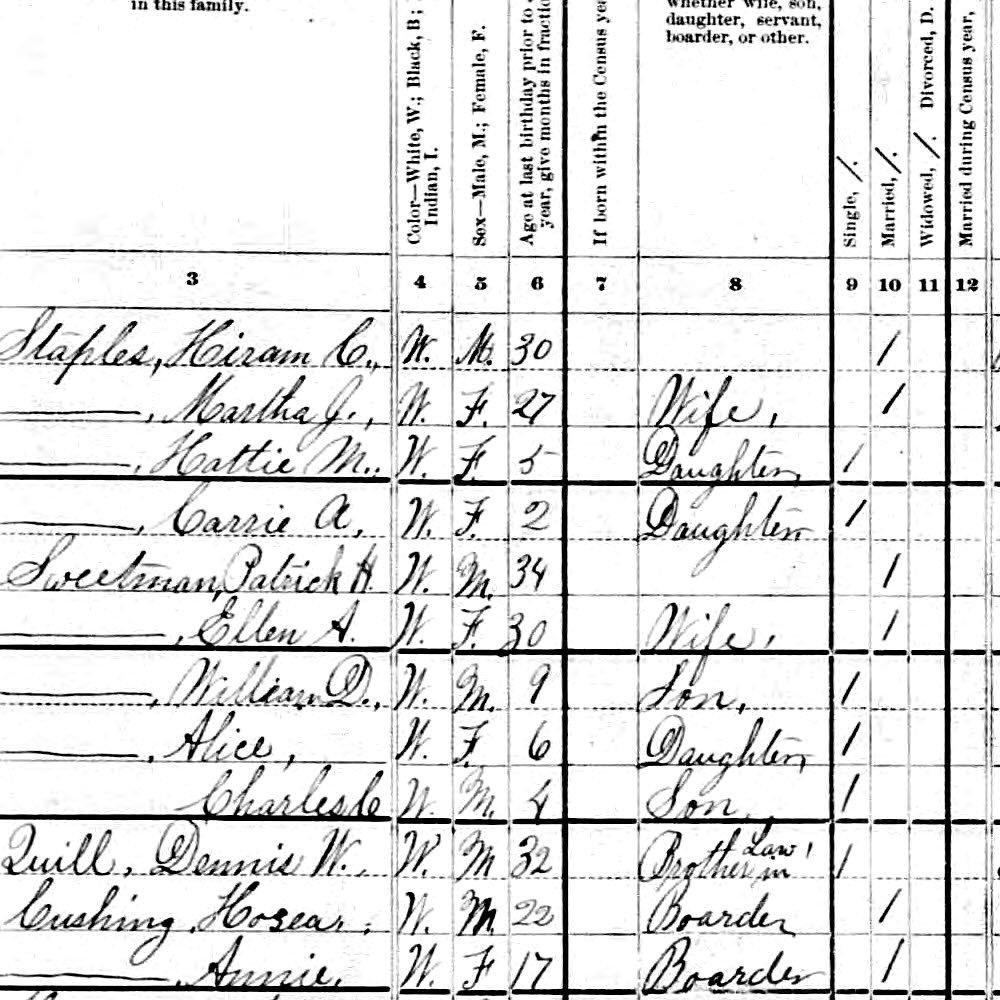 in this family.
Color—White, W.; Black, B;
Indian, I.
Sex—Male, M.; Female, F.
Age at last birthday prior to
year, give months in fractio
If born within the Census yea
whether wife, son,
daughter, servant,
boarder, or other.
Single, /.
Married, /.
Widowed, /. Divorced, D.
Married during Census year,
3 4 5 6 7 8 9 10 11 12
Staples, Hiram C., W. M. 30 1
——, Martha J., W. F. 27 Wife, 1
——, Hattie M., W. F. 5 Daughter, 1
——, Carrie A, W. F. 2 Daughter 1
Sweetman, Patrick H. W. M. 34 1
——, Ellen A. W. F. 30 Wife, 1
——, William D., W. M. 9 Son, 1
——, Alice, W. F. 6 Daughter, 1
Charles C W. M. 4 Son, 1
Quill, Dennis W., W. M 32 Brother in Law 1
Cushing, Hosear, W. M. 22 Boarder 1
——, Annie, W. F 17 Boarder 1